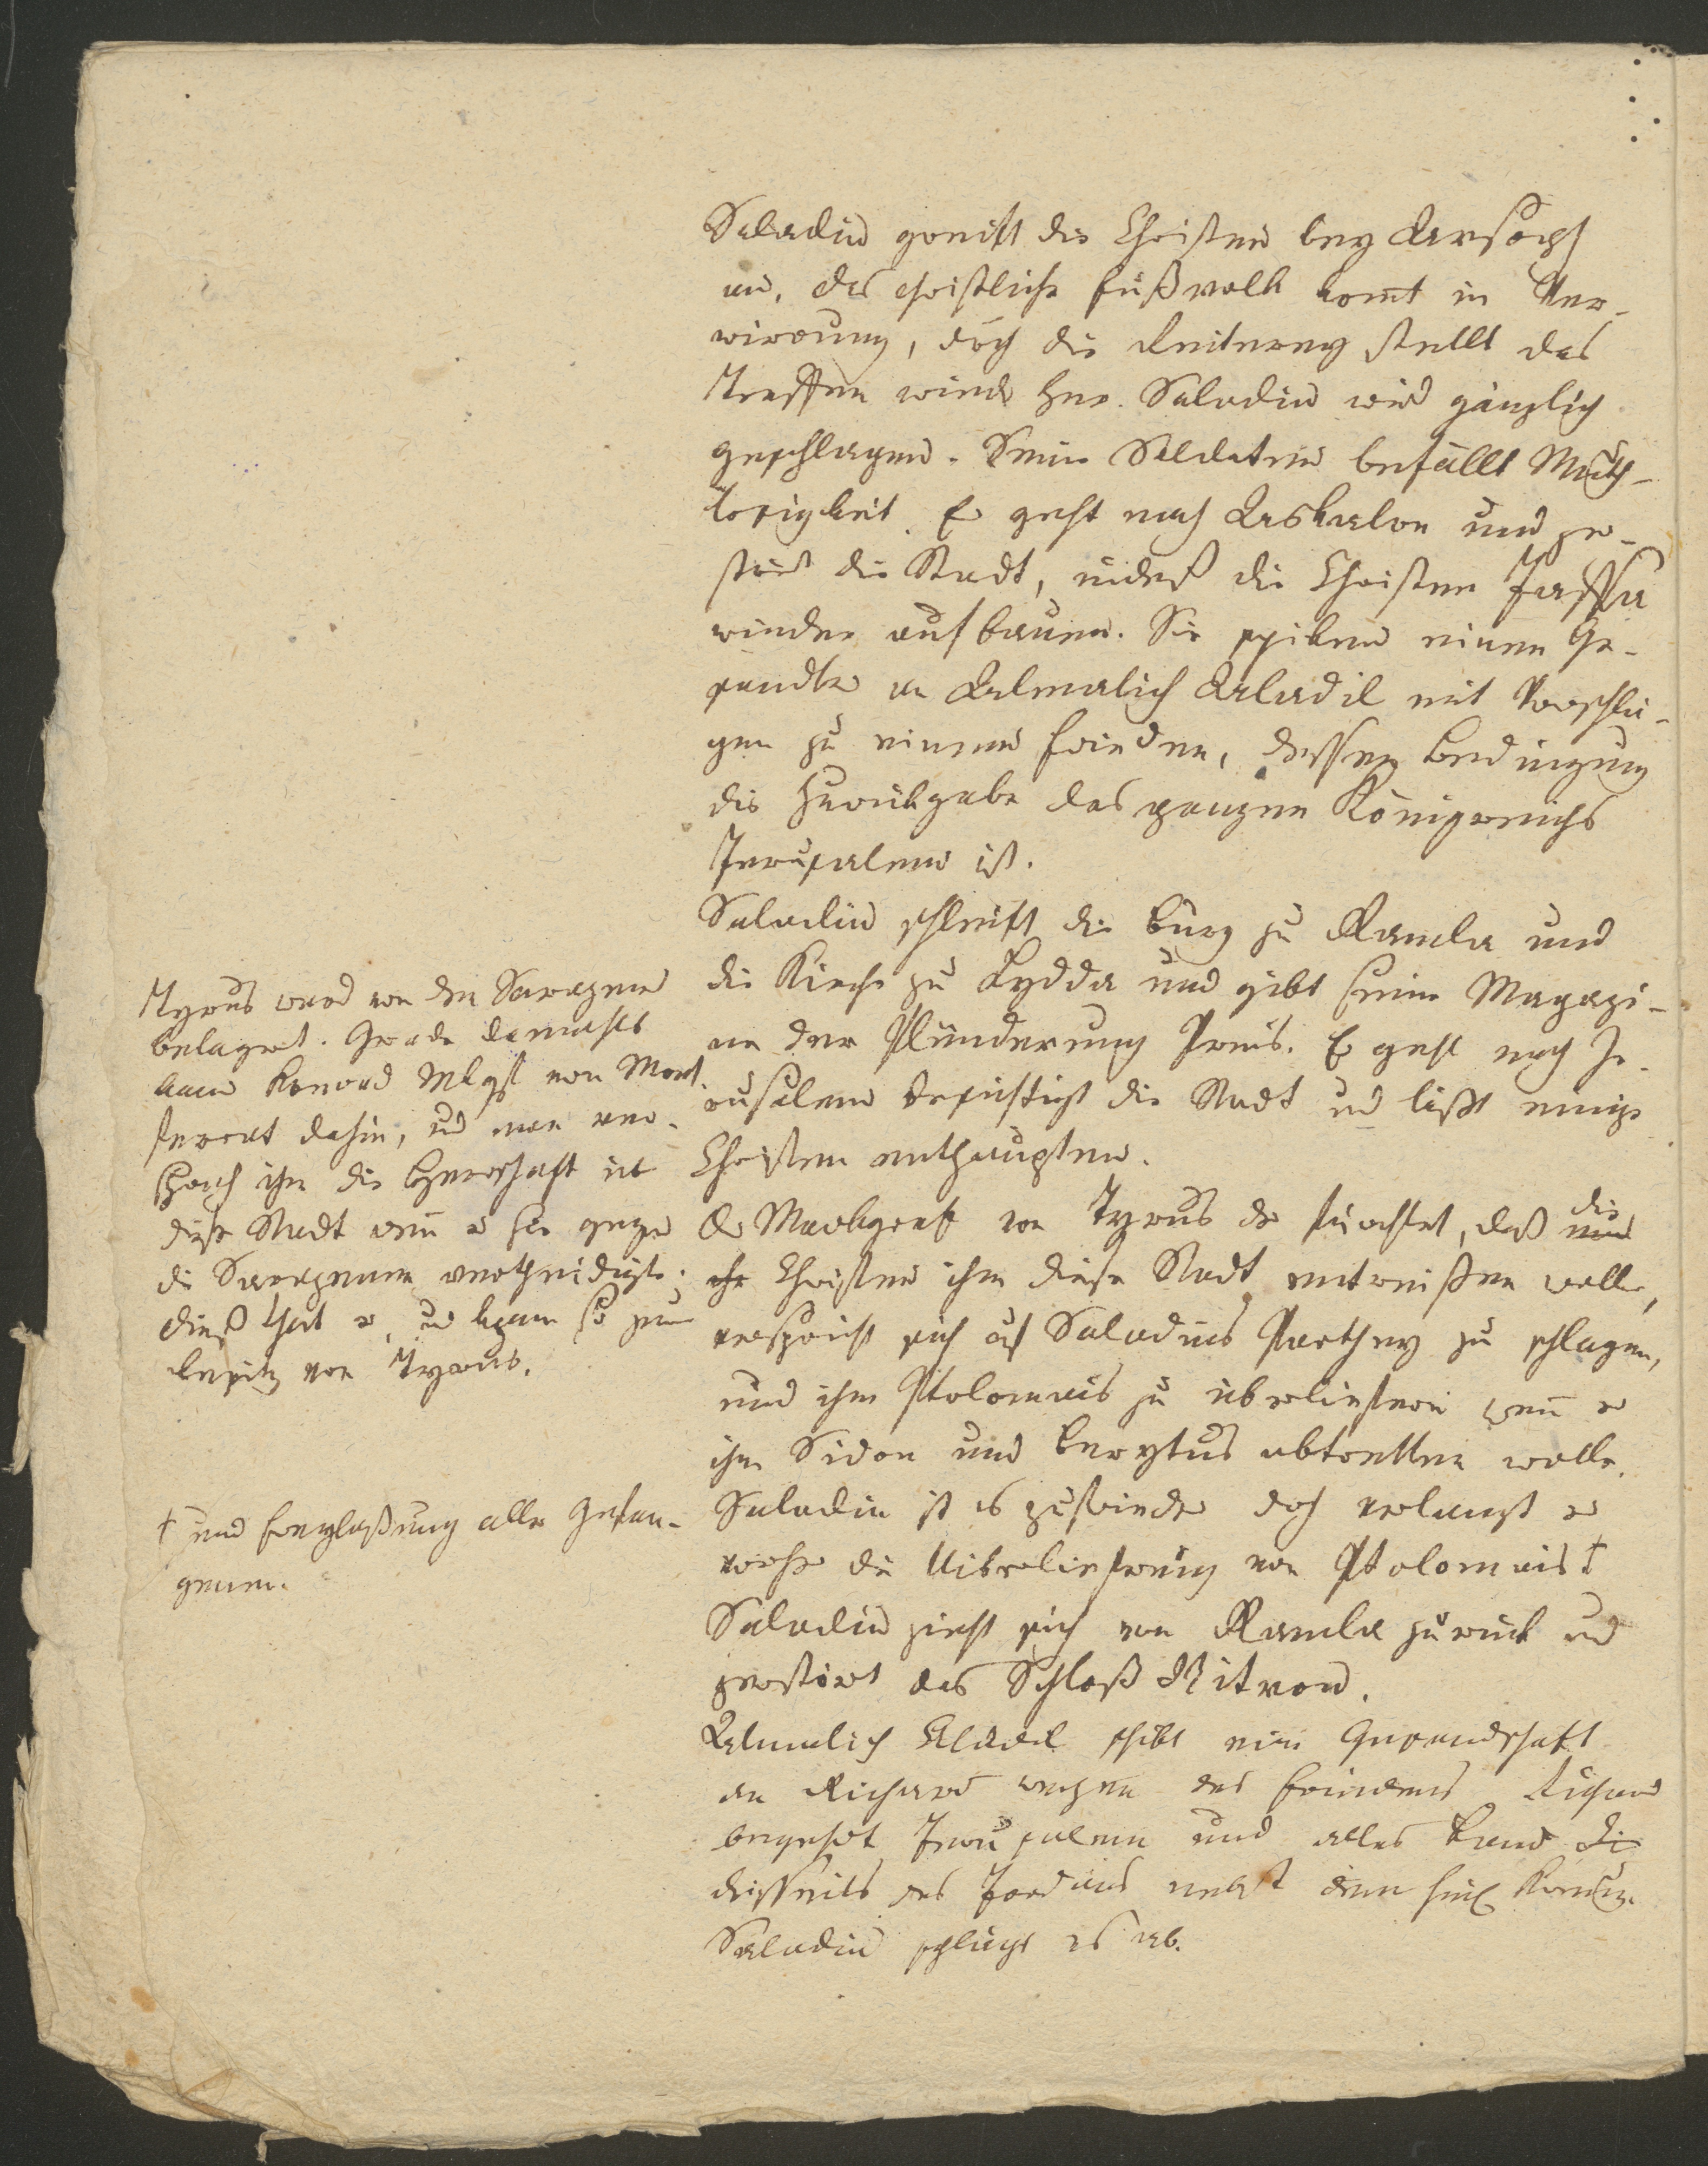 Saladin greift die Christen bey Arsoph
an, das christliche Fußvolk komt in Ver-
wirrung, doch die Reiterey stellt das
Treffen wieder her. Saladin wird gänzlich
geschlagen. Seine Soldaten befällt Muth-
losigkeit. Er geht nach Askalon und zer-
stört die Stadt, indeß die Christen Jaffa
wieder aufbauen. Sie schiken einen Ge-
sandten an Almalich Aladil mit Vorschlä-
gen zu einem Frieden, dessen Bedingung
die Zurükgabe des ganzen Königreichs
Jerusalem ist.
Saladin schleift die Burg zu Ramla und
die Kirche zu Lydda und gibt seine Magazi-
ne der Plünderung Preis. Er geht nach Je-
rusalem besichtigt die Stadt und läßt einige
Christen enthaupten.
Der Markgraf von Tyrus der fürchtet, daß die
Christen ihm diese Stadt entreißen wollen,
verspricht sich auf Saladins Parthey zu schlagen,
und ihm Ptolomais zu überliefern wenn er
ihm Sidon und Berytus abtretten wolle.
Saladin ist es zufrieden doch verlangt er
vorher die Uiberlieferung von Ptolomais †
Saladin zieht sich von Ramla zurück und
zerstört das Schloß Nitron.
Almalich Aladil schikt eine Gesandschaft
an Richard wegen des Friedens Richard
begehrt Jerusalem und alles Land die
disseits des Jordans nebst dem heil. Kreuz.
Saladin schlägt es ab.
Tyrus ward von den Sarazenen
belagert. Gerade damahls
kam Konrad Mkgf von Mont-
ferrat dahin, und man ver-
sprach ihm die Herrschaft üb
diese Stadt wenn er sie gegen
die Sarazenen vertheidigte.
dieß that er, und kam so zum
Besitz von Tyrus.
† und Freylaßung aller Gefan-
genen.